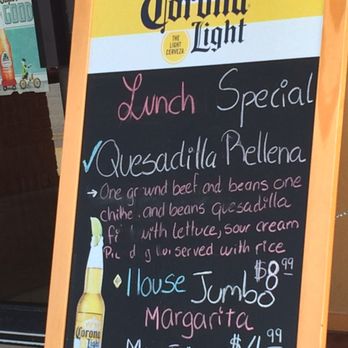 GOOD
Corona
Light
THE
LIGHT
CERVEZA
Lunch Special
Quesadilla Rellena
One ground beef and beans one
and beans quesadilla
with lettuce, sour cream
served with rice
$8.99
House Jumbo
Margarita
Corona
Light